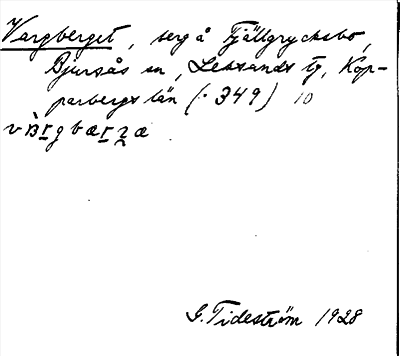 Vargberget, berg å Fjällgrycksbo,
Bjursås sn, Leksands tg, Kop-
parbergs län (: 349) 10
G. Tideström 1928